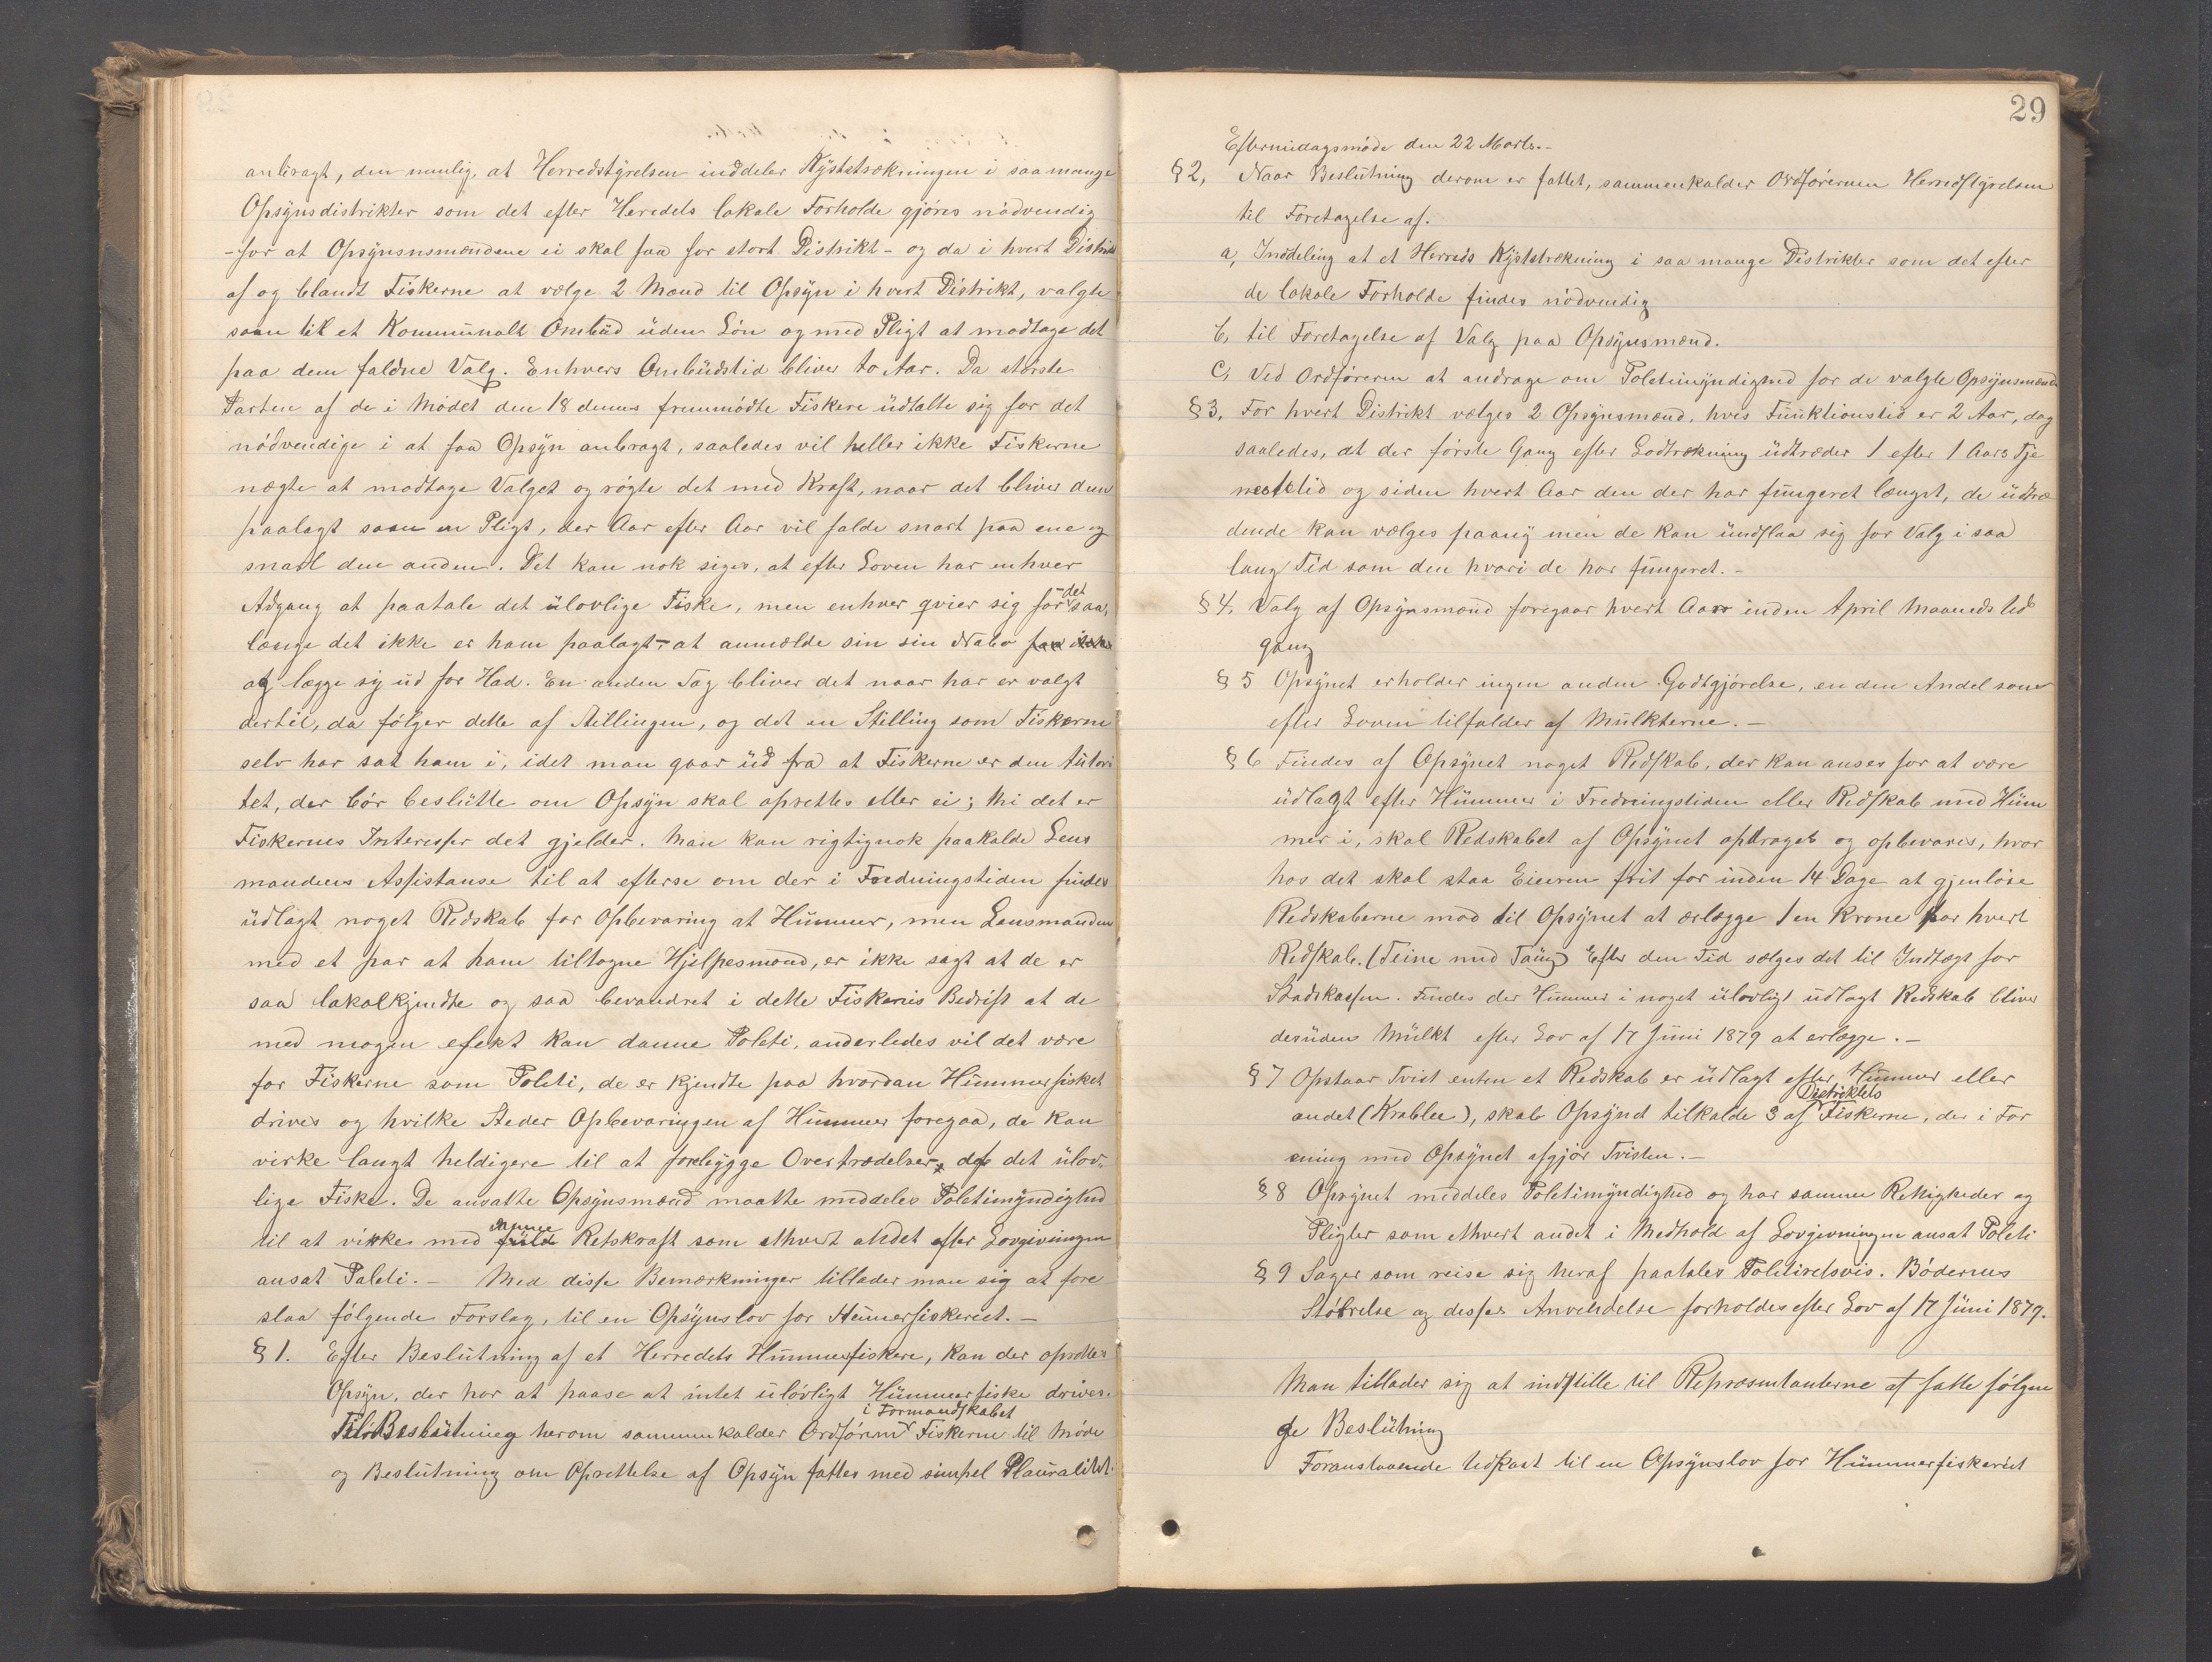 anbragt, den nemlig, at Herredstyrelsen inddeler Kyststrækningen i saa mange
Opsynsdistrikter som det efter Heredets lokale Forholde gjöres nödvendig
- for at Opsynsmændene ei skal faa for stort Distrikt - og da i hvert Distrikt
af og blandt Fiskerne at vælge 2 Mænd til Opsyn i hvert Distrikt, valgte
som til et Kommunalt Ombud uden Lön og med Pligt at modtage det
paa dem faldne Valg. Enhvers Ombudstid bliver to Aar. Da störste
Parten af de i Mödet den 18 dennes fremmödte Fiskere udtalte sig for det
nödvendige i at faa Opsyn anbragt, saaledes vil heller ikke Fiskerne
negte at modtage Valget og rögte det med Kraft, naar det bliver dem
paalagt som en Pligt, der Aar efter Aar vil falde snart paa ene og
snart den anden. Det kan nok siges, at efter Loven har enhver
Adgang at paatale det ulovlige Fiske, men enhver qvier sig for - det saa
længe det ikke er ham paalagt - at anmelde sin sin Nabo
og lægge sig ud for Had. En anden Sag bliver det naar har er valgt
dertil, da fölger dette af Stillingen, og det en Stilling som Fiskerne
selv har sat ham i, idet man gaar ud fra at Fiskerne er den Autori
tet, der bör beslutte om Opsyn skal oprettes eller ei; thi det er
Fiskernes Interesser det gjelder. Man kan rigtignok paakalde Lens
mandens Assistanse til at efterse om der i Fredningstiden findes
udlagt noget Redskab for Opbevaring at Hummer, men Lensmanden
med et par at ham tiltagne Hjelpesmænd, er ikke sagt at de er
saa lokalkjendte og saa bevandret i dette Fiskeris Bedrift at de
med nogen efekt kan danne Politi, anderledes vil det være
for Fiskerne som Politi, de er kjendte paa hvordan Hummerfisket
drives og hvilke Steder Opbevaringen af Hummer foregaa, de kan
virke langt heldigere til at forebygge Overtrædelser af det ulov-
lige Fiske. De ansatte Opsynsmænd maatte meddeles Politimyndighed
til at virke med samme Retskraft som ethvert andet efter Lovgivningen
ansat Politi. - Med disse Bemærkninger tillader man sig at fore
slaa fölgende Forslag, til en Opsynslov for Hummerfiskeriet. -
§ 1. Efter Beslutning af et Herredets Hummerfiskere, kan der oprettes
Opsyn, der har at paase at intet ulovligt Hummerfiske drives.
Til Beslutning herom sammenkalder Ordföreren i Formandskabet Fiskerne til Möde
og Beslutning om Oprettelse af Opsyn fattes med simpel Plauralitet.
29
Eftermidagsmöde den 22 Marts. -
§ 2, Naar Beslutning derom er fattet, sammenkalder Ordföreren Herredstyrelsen
til Foretagelse af.
a, Inddeling at et Herreds Kyststrækning i saa mange Distrikter som det efter
de lokale Forholde findes nödvendig
b, til Foretagelse af Valg paa Opsynsmænd.
C, Ved Ordföreren at andrage om Politimyndighed for de valgte Opsynsmænd
§ 3, For hvert Distrikt vælges 2 Opsynsmænd, hvis Funktionstid er 2 Aar, dog
saaledes, at der förste Gang efter Lodtrækning udtræder 1 efter 1 Aars Tje
nestetid og siden hvert Aar den der har fungeret længst, de udtræ
dende kan vælges paany men de kan undslaa sig for Valg i saa
lang Tid som den hvori de har fungeret. -
§ 4, Valg af Opsynsmænd foregaar hvert Aar inden April Maaneds Ud
gang
§ 5 Opsynet erholder ingen anden Godtgjörelse, en den Andel som
efter Loven tilfalder af Mulkterne. -
§ 6 Findes af Opsynet noget Redskab, der kan anses for at være
udlagt efter Hummer i Fredningstiden eller Redskab med Hum
mer i, skal Redskabet af Opsynet optages og opbevares, hvor
hos det skal staa Eieren frit for inden 14 Dage at gjenlöse
Redskaberne mod til Opsynet at erlægge 1 en Krone for hvert
Redskab. (Teine med Taug) Efter den Tid sælges det til Indtægt for
Stadskassen. Findes der Hummer i noget ulovligt udlagt Redskab bliver
desuden Mulkt efter Lov af 17 Juni 1879 at erlægge. -
§ 7 Opstaar Tvist enten et Redskab er udlagt efter Hummer eller
andet (Krabber), skal Opsynet tilkalde 3 af Distriktets Fiskerne, der i For
ening med Opsynet afgjör Tvisten. -
§ 8 Opsynet meddeles Politimyndighed og har samme Rettigheder og
Pligter som ethvert andet i Medhold af Lovgivningen ansat Politi
§ 9 Sager som reise sig heraf paatales Politiretsvis. Bödernes
Störrelse og disses Anvendelse forholdes efter Lov af 17 Juni 1879.
Man tillader sig at indstille til Repræsentanterne at fatte fölgen
de Beslutning
Foranstaaende Udkast til en Opsynslov for Hummerfiskeriet